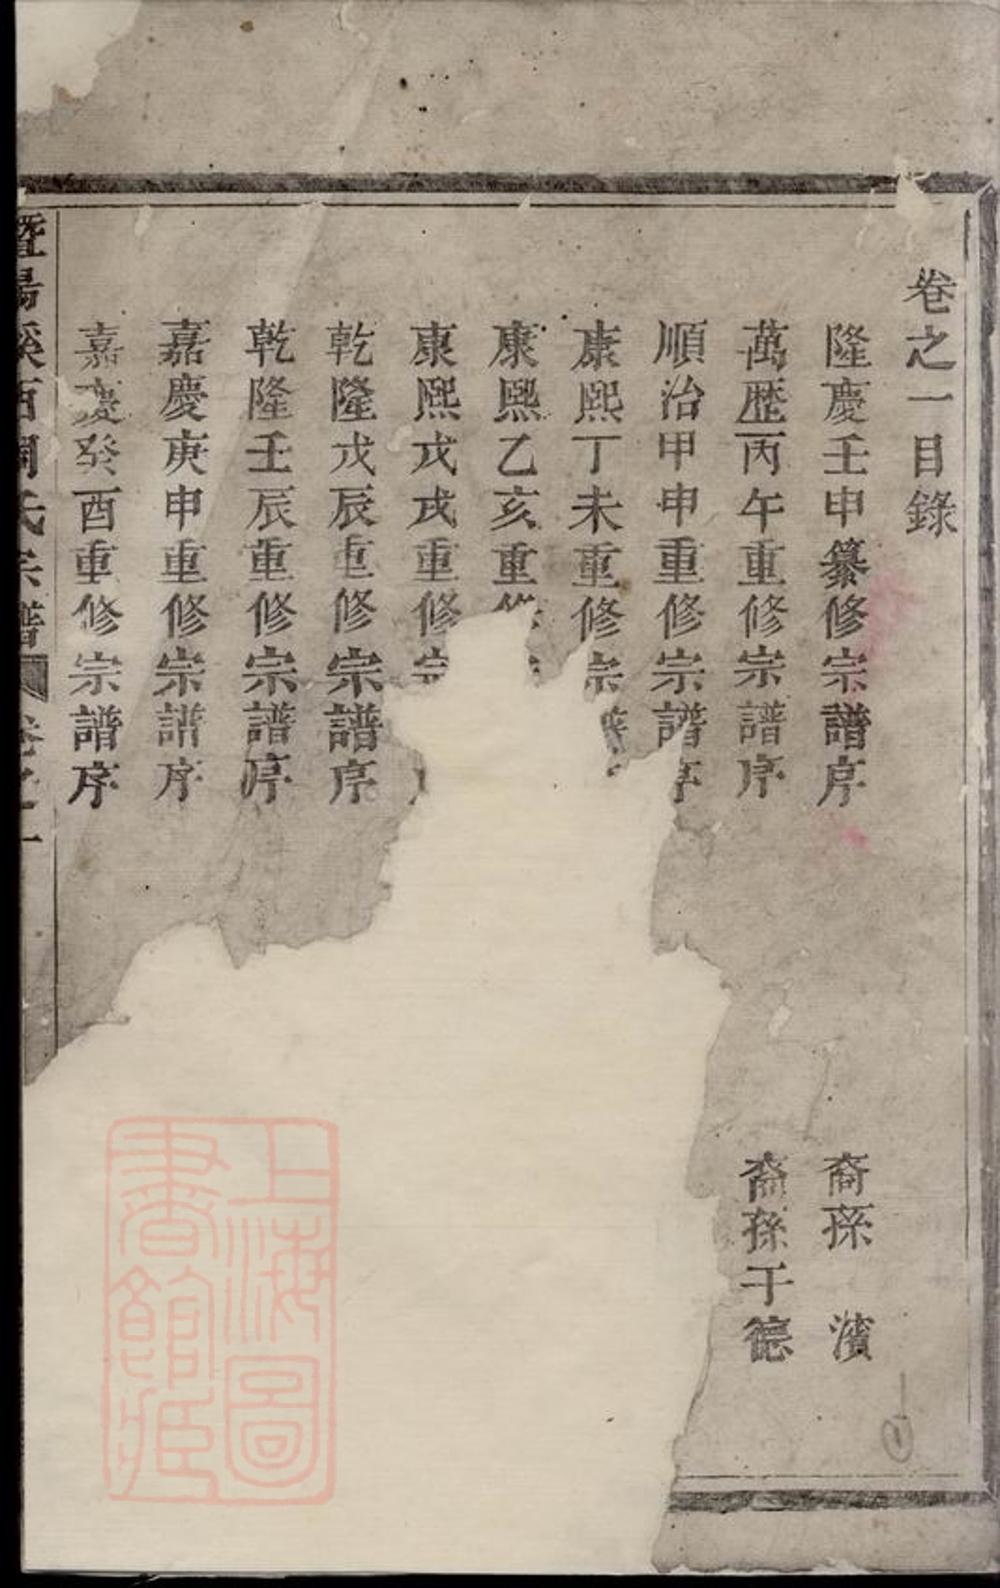 卷之一目錄
隆慶壬申纂修宗譜序 裔孫 濱
萬歷丙午重修宗譜序 裔孫于德
順治甲申重修宗譜序
康熙丁未重修宗
康熙乙亥重修
康熙戊戌重修宗
乾隆戊辰重修宗譜序
乾隆壬辰重修宗譜序
嘉慶庚申重修宗譜序
嘉慶癸酉重修宗譜序
暨陽溪西周氏宗譜 卷之一
上海圖書館藏